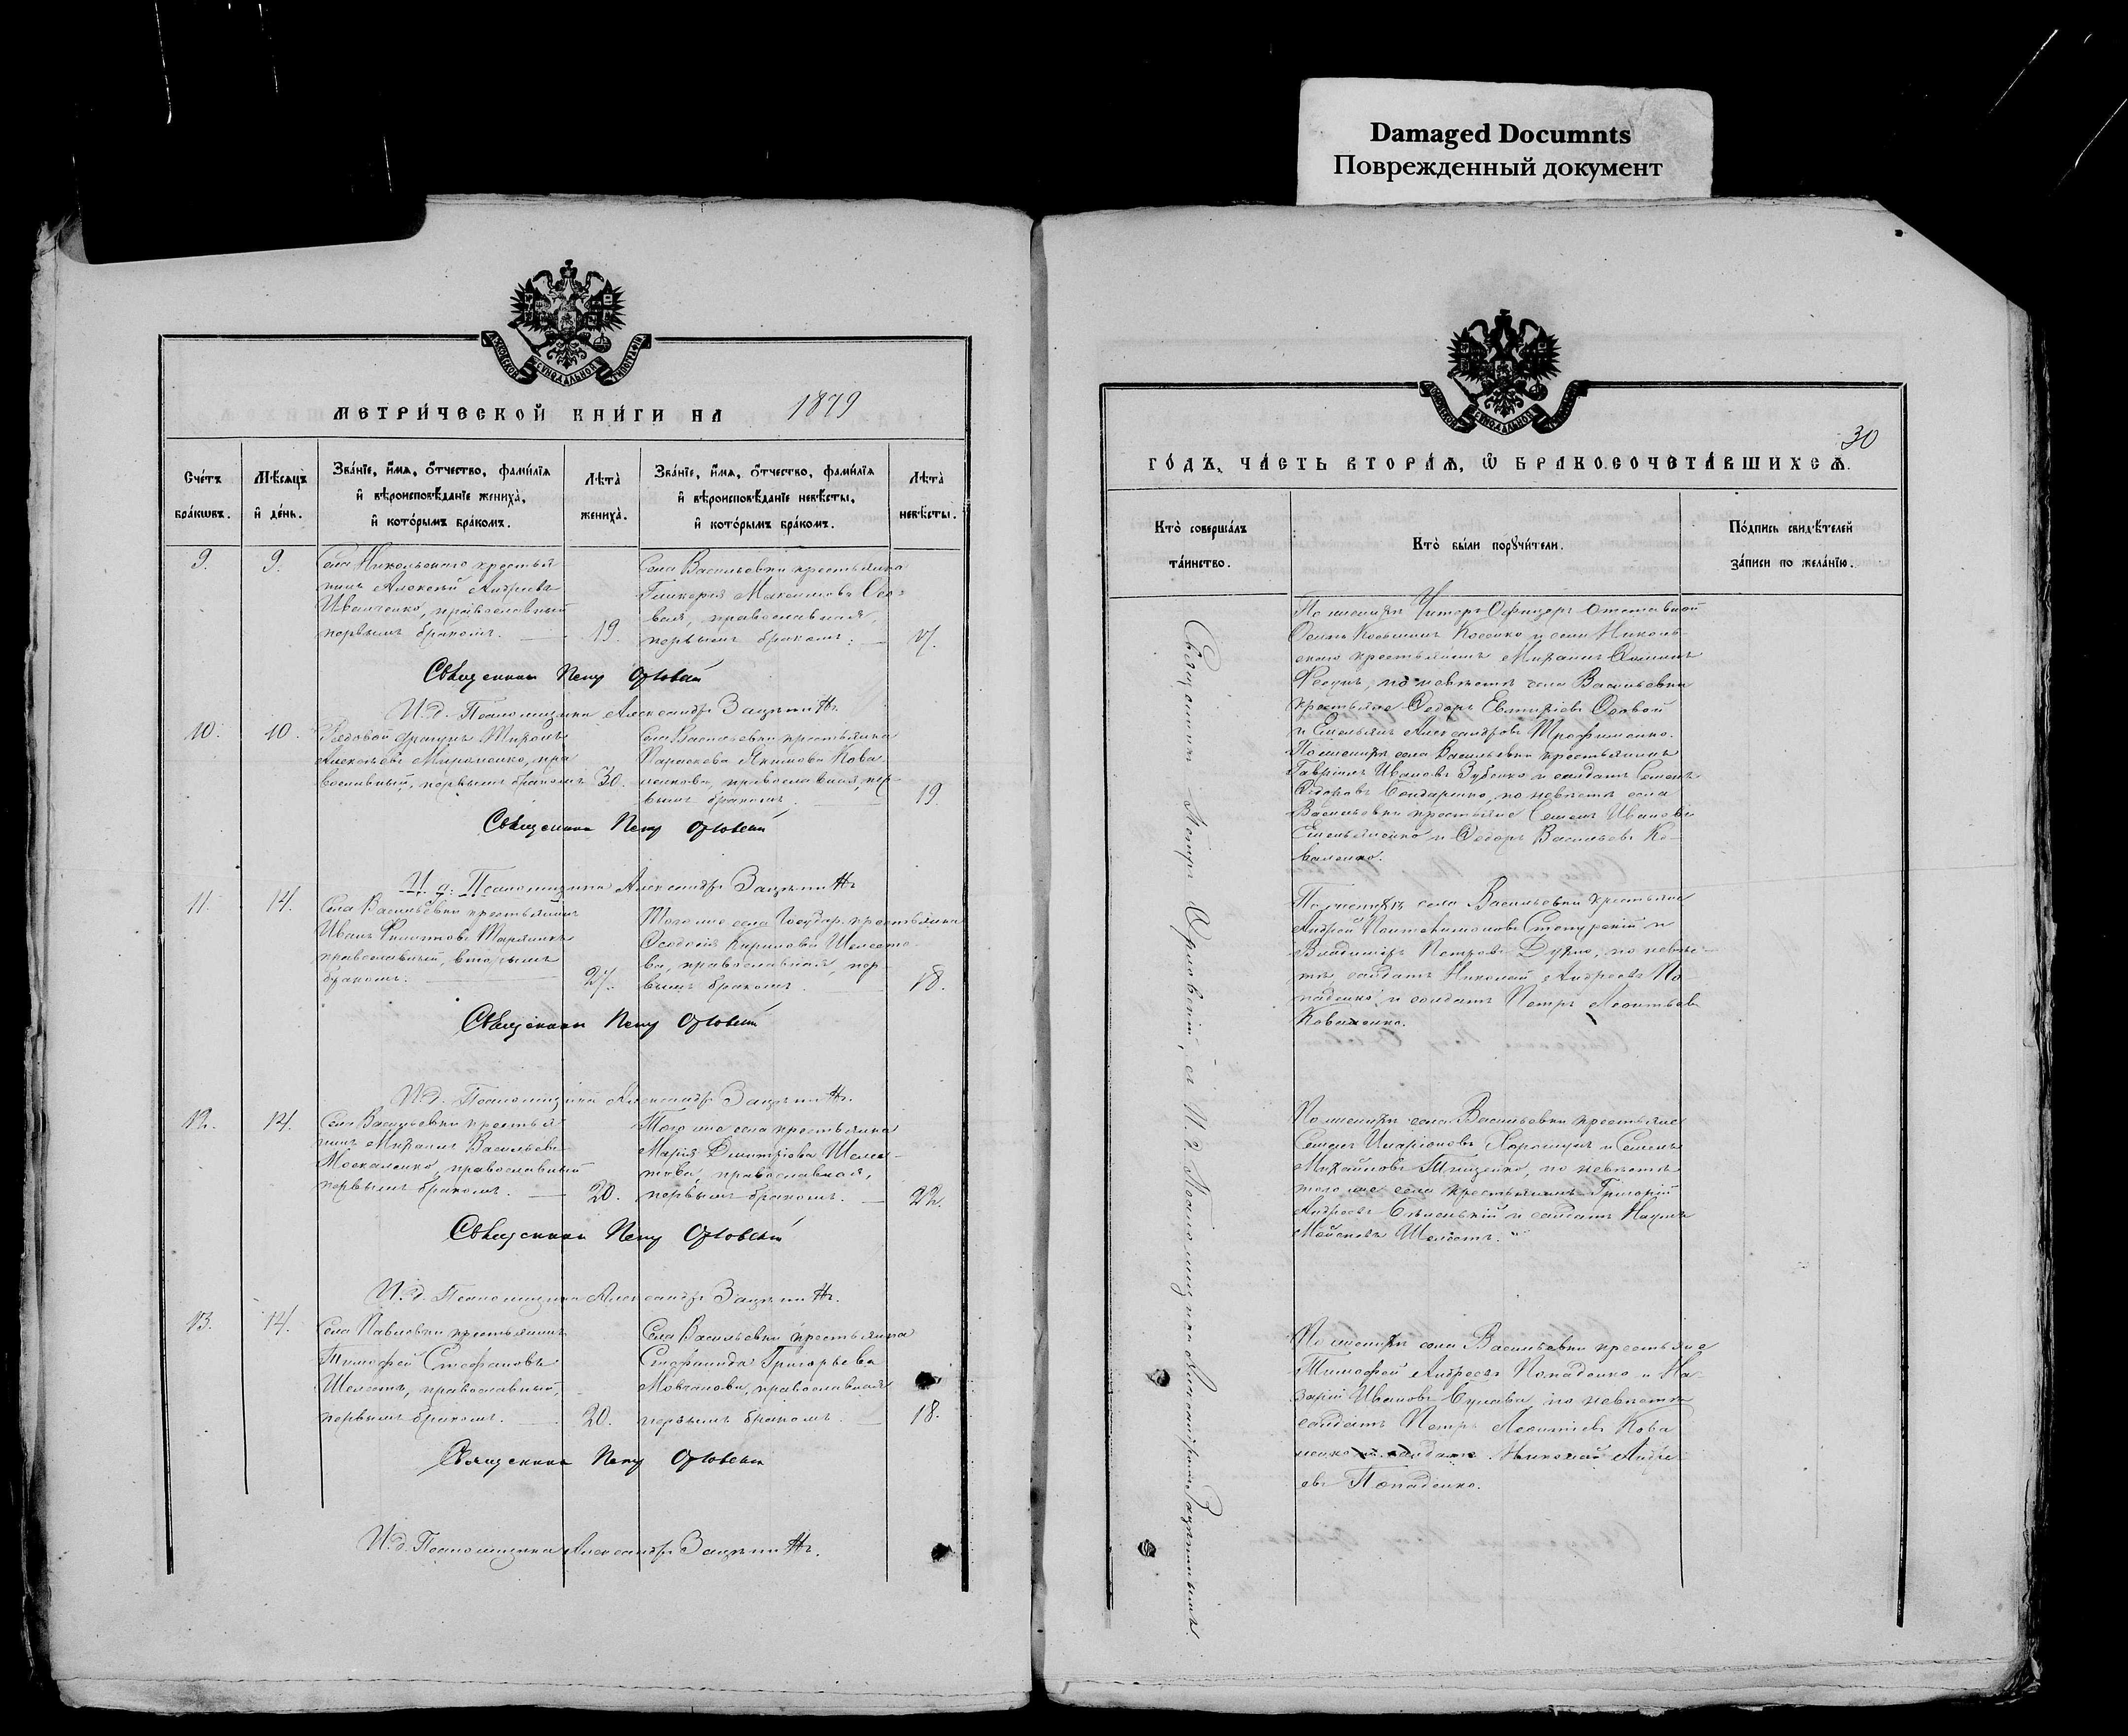 Damaged Documnts
Поврежденный документ
МЕТРИЧЕСКОЙ КНИГИ НА 1879
Счетъ браковъ.
Мѣсяцъ и день.
Званіе, имя, отчество, фамилія
и вѣроисповѣданіе жениха,
и которымъ бракомъ.
Лѣта жениха.
Званіе, имя, отчество, фамилія
и вѣроисповѣданіе невѣсты,
и которымъ бракомъ.
Лѣта невѣсты.
9. 9.
Села Никольскаго крестья
нинъ Алексѣй Андреевъ
Иванченко, православный
первымъ бракомъ. 19.
Села Васильевки крестьянка
Гликерія Максимова Осо-
вая, православная,
первымъ бракомъ. 17.
Священникъ Петръ Орловскій
И. д. Псаломщика Александръ
10. 10.
Рядовой драгунъ
Алексѣевъ Мироненко, пра
вославный, первымъ бракомъ 30.
Села Васильевки крестьянка
Параскева Якимова Кова
ленкова, православная, пер-
вымъ бракомъ. 19.
Священникъ Петръ Орловскій
И. д. Псаломщика Александръ
11. 14.
Села Васильевки крестьянинъ
Иванъ Филиповъ
православный, вторымъ
бракомъ. 27.
Того же села Государ. крестьянка
Ѳеодосія Кирилова Шелесто
ва, православная, пер-
вымъ бракомъ. 18.
Священникъ Петръ Орловскій
И. д. Псаломщика Александръ
12. 14.
Села Васильевки крестья
нинъ Михаилъ Васильевъ
Москаленко, православный
первымъ бракомъ. 20.
Того же села крестьянка
Марія Димитріева Шелес-
това, православная,
первымъ бракомъ. 22.
Священникъ Петръ Орловскій
И. д. Псаломщика Александръ
13. 14.
Села Павловки крестьянинъ
Тимофей Стефановъ
Шелестъ, православный,
первымъ бракомъ. 20.
Села Васильевки крестьянка
Григорьева
Мовчанова, православная
первымъ бракомъ. 18.
Священникъ Петръ Орловскій
И. д. Псаломщика Александръ
30
ГОДЪ, ЧАСТЬ ВТОРАЯ, Ѡ БРАКОСОЧЕТАВШИХСЯ.
Кто совершалъ
таинство.
Кто были поручители.
Подпись свидѣтелей
записи по желанію.
Священникъ Петръ Орловскій, съ И. д. Псаломщика Александромъ
По женихѣ Унтеръ Офицеръ отставной
Косенко и села Николь-
скаго крестьянинъ Михаилъ
по невѣстѣ села Васильевки
крестьяне Ѳедоръ Особой
и Емельянъ Александровъ Трофименко.
По женихѣ села Васильевки крестьянинъ
Гавріилъ Ивановъ Зубенко и солдатъ Семенъ
Ѳедоровъ Бондаренко, по невѣстѣ села
Васильевки крестьяне Семенъ Ивановъ
Емельяненко и Ѳедоръ Васильевъ Ко-
валенко.
По женихѣ села Васильевки крестьяне
Андрей Пантелимоновъ и
Владиміръ Петровъ по невѣс-
тѣ, солдатъ Николай Андреевъ По
паденко и солдатъ Петръ Леонтьевъ
Коваленко.
По женихѣ села Васильевки крестьяне
Семенъ Иларіоновъ и Семенъ
Михайловъ Тищенко, по невѣстѣ
того же села крестьянинъ Григорій
Андреевъ и солдатъ Наумъ
Шелестъ.
По женихѣ села Васильевки крестьяне
Тимофей Андреевъ Попаденко и На
зарій Ивановъ по невѣстѣ
солдатъ Петръ Леонтіевъ Кова
ленко и солдатъ Николай Андре
евъ Попаденко.